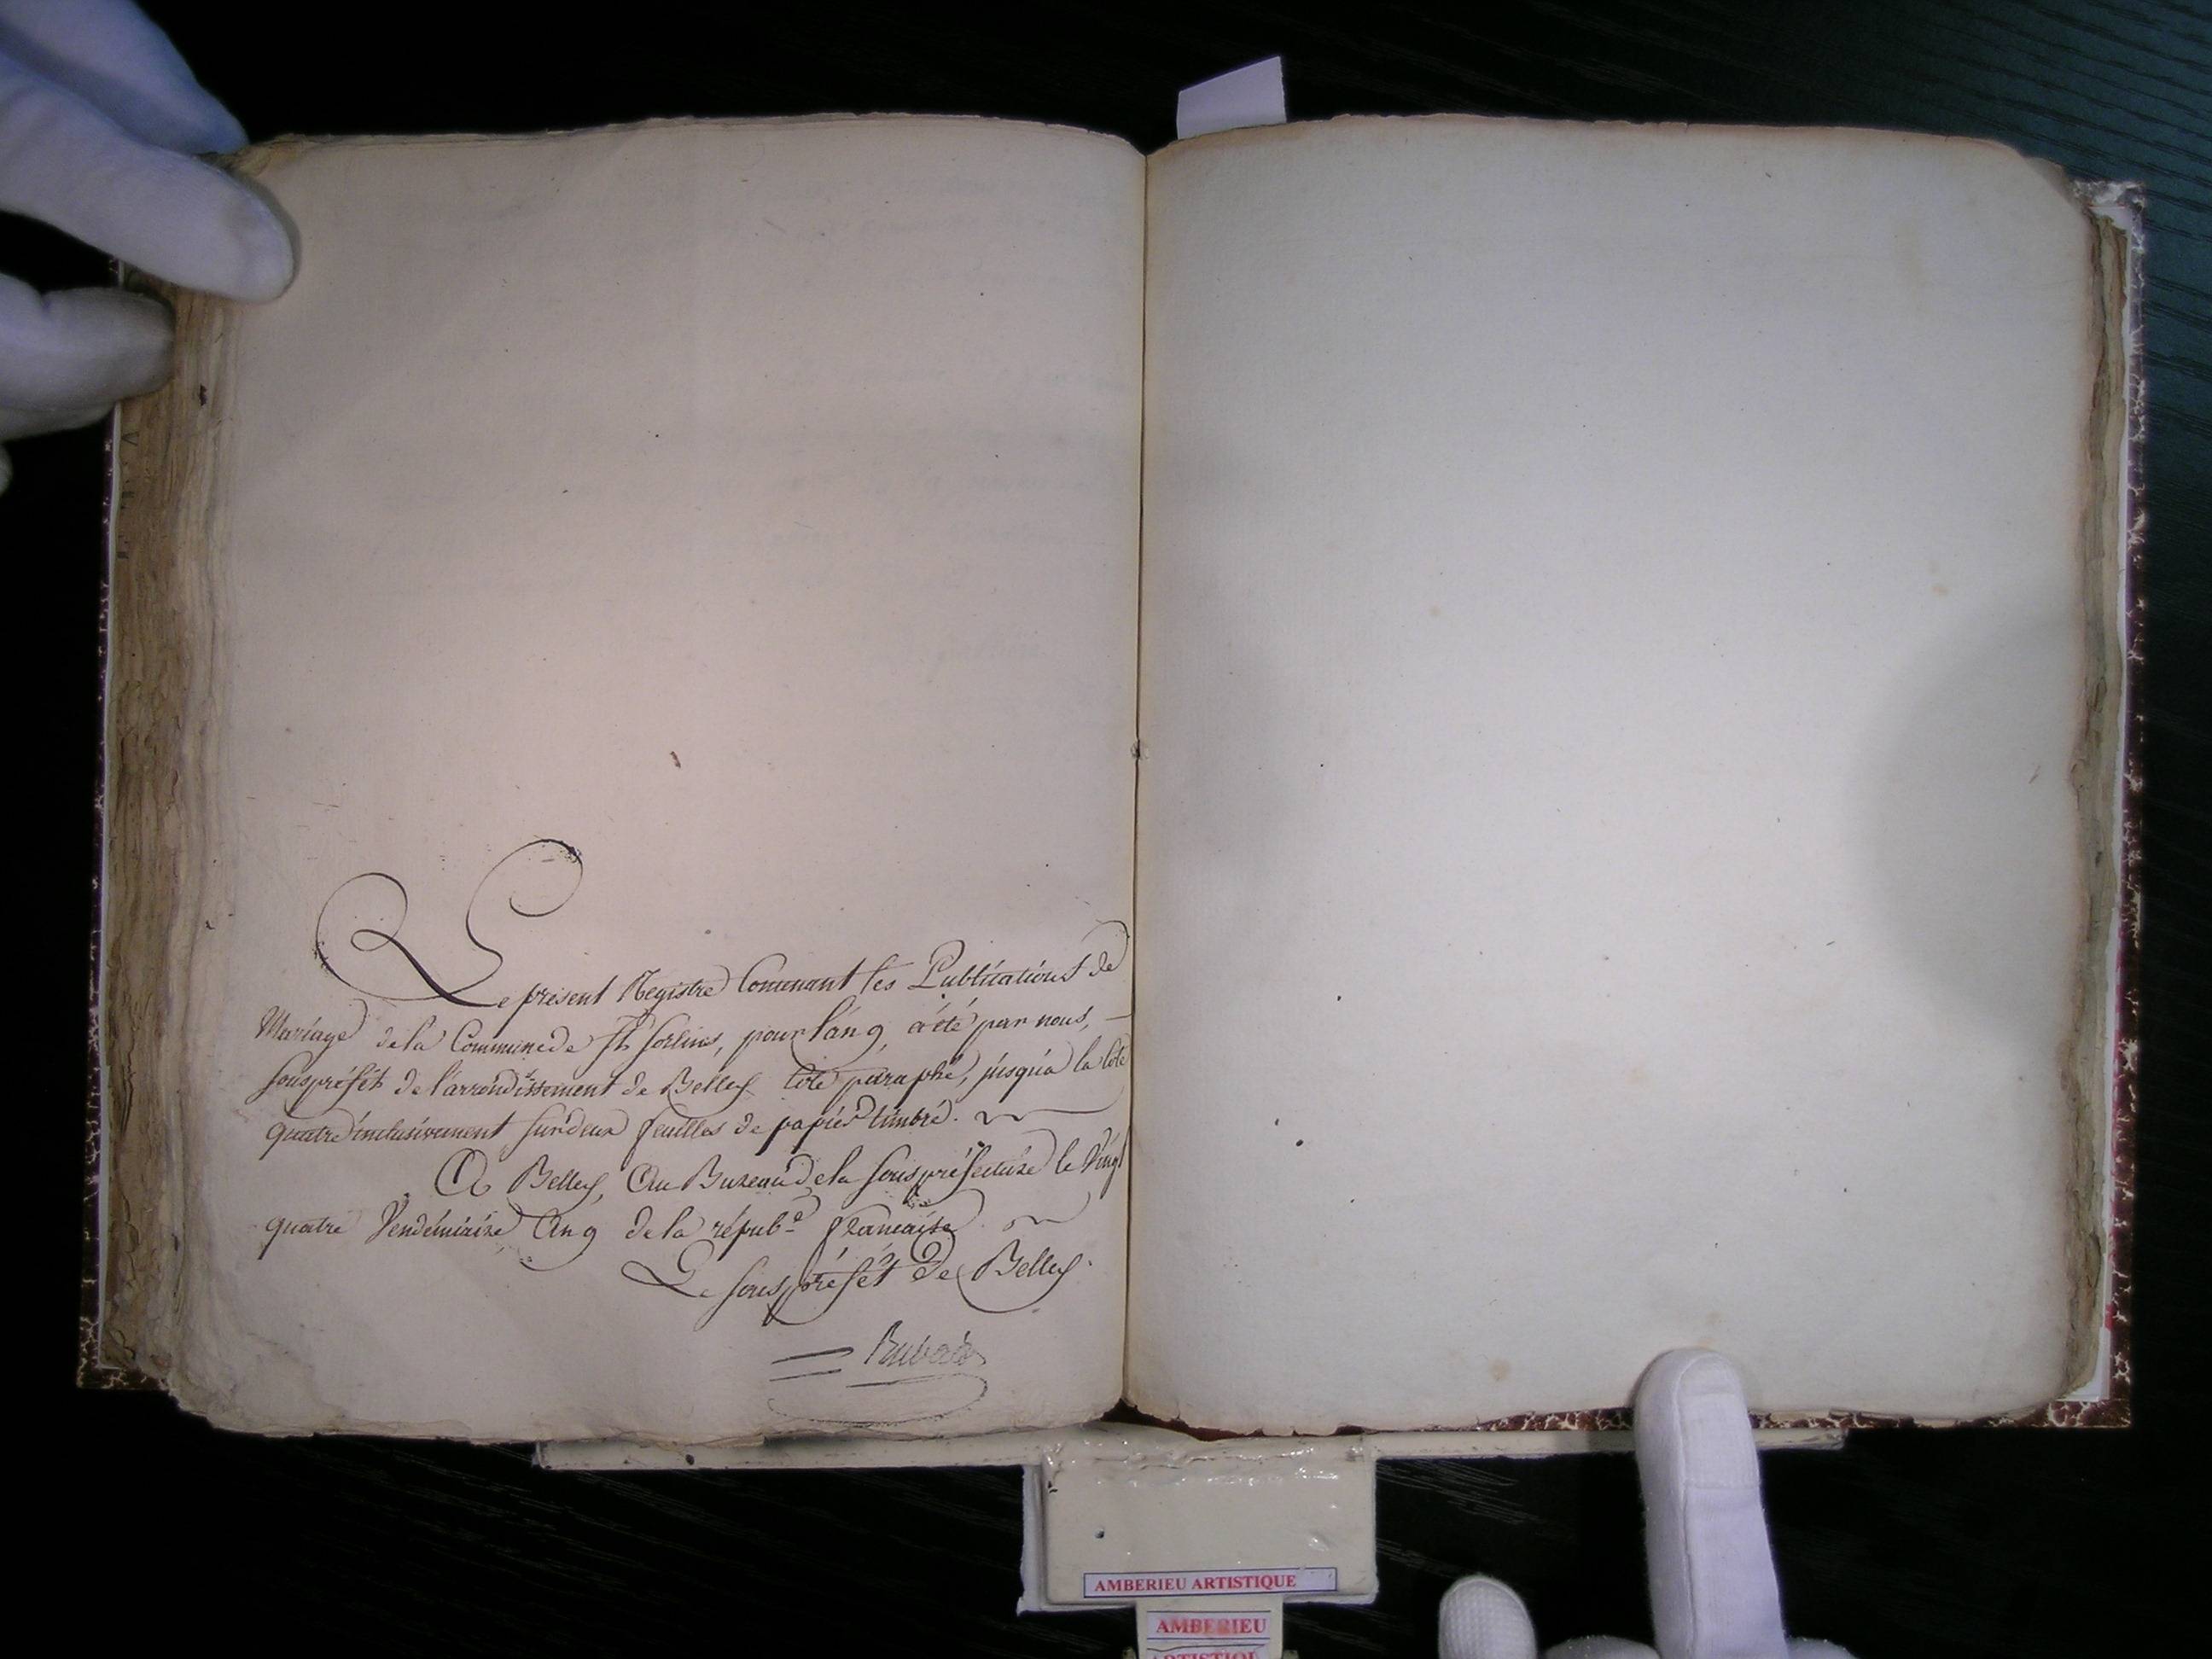 Le présent Registre Contenant les Publications de
Mariage de la Commune de St Sorlins, pour l'an 9, a été par nous, —
sous préfêt de l'arrondissement de Belley Coté paraphé, jusqu'à la Cote
quatre inclusivement sur deux feuilles de papier timbré.
A Belley, Au Bureau de la sous préfecture le Vingt
quatre Vendémiaire An 9 de la répub.e francaise
Le sous préfêt de Belley.
AMBERIEU ARTISTIQUE
AMBERIEU
ARTISTIQUE